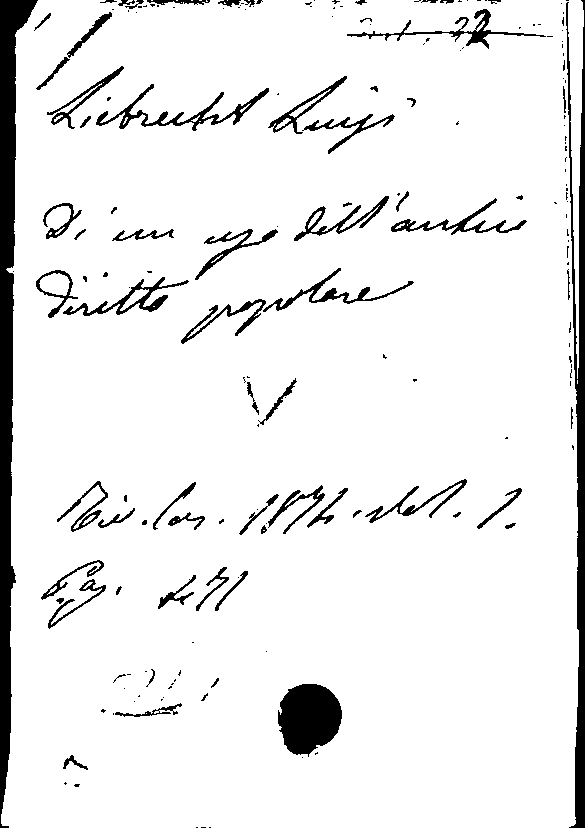 Liebrecht Luigi
Di un uso dell'antico
diritto popolare
V
Riv. 187 vol. 1.
Pag. 471